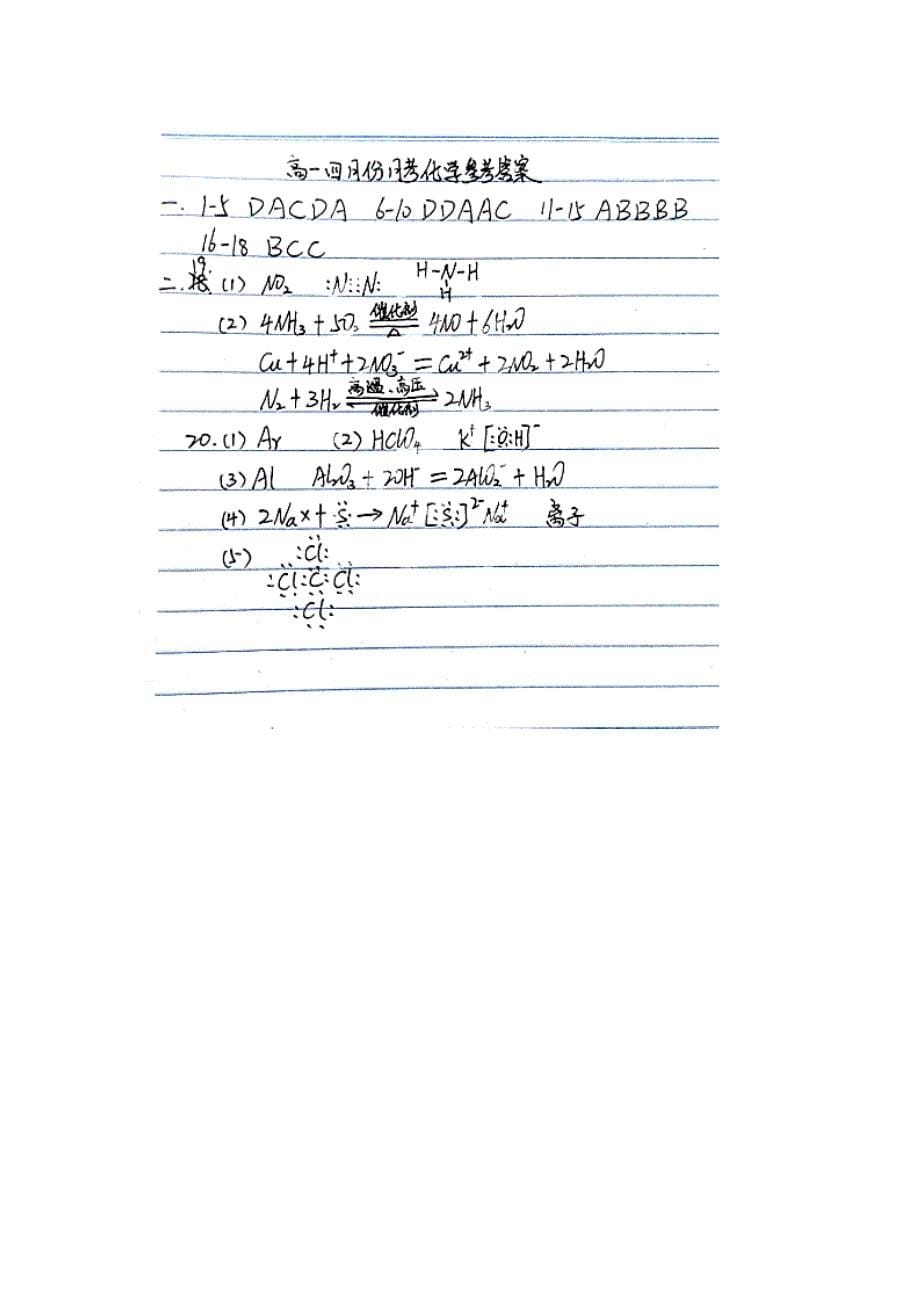 高一四月份月考化学参考答案
一. 1-5 DACDA 6-10 DDAAC 11-15 ABBBB
16-18 BCC
二. 19. (1) NO₂ :N⋮⋮N: H-N-H
H
(2) 4NH₃ + 5O₂ 催化剂 ══ △ 4NO + 6H₂O
Cu + 4H⁺ + 2NO₃⁻ = Cu²⁺ + 2NO₂ + 2H₂O
N₂ + 3H₂ 高温、高压 ⇌ 催化剂 2NH₃
20. (1) Ar (2) HClO₄ K⁺[:Ö:H]⁻
(3) Al Al₂O₃ + 2OH⁻ = 2AlO₂⁻ + H₂O
(4) 2Na× + :S: → Na⁺[:S:]²⁻Na⁺ 离子
(5) :Cl:
:Cl:C:Cl:
:Cl: